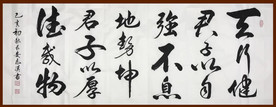 天行健
君子以自
強不息
地勢坤
君子以厚
德載物
己亥初秋